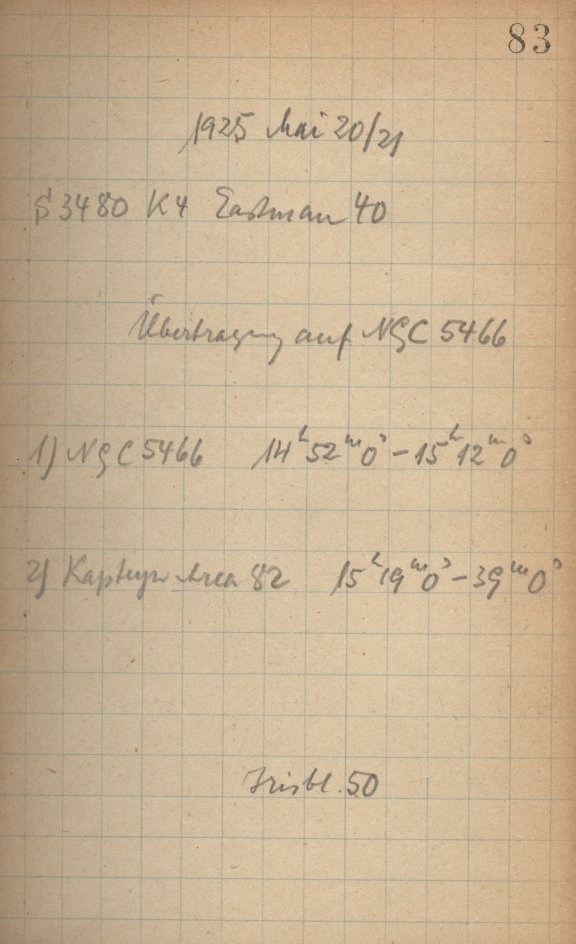 83
1925 Mai 20/21
S 3480 K4 Eastman 40
Übertragung auf NGC 5466
1) NGC 5466 14ʰ52ᵐ0ˢ – 15ʰ12ᵐ0ˢ
2) Kapteyn Area 82 15ʰ19ᵐ0ˢ – 39ᵐ0ˢ
Irisbl. 50